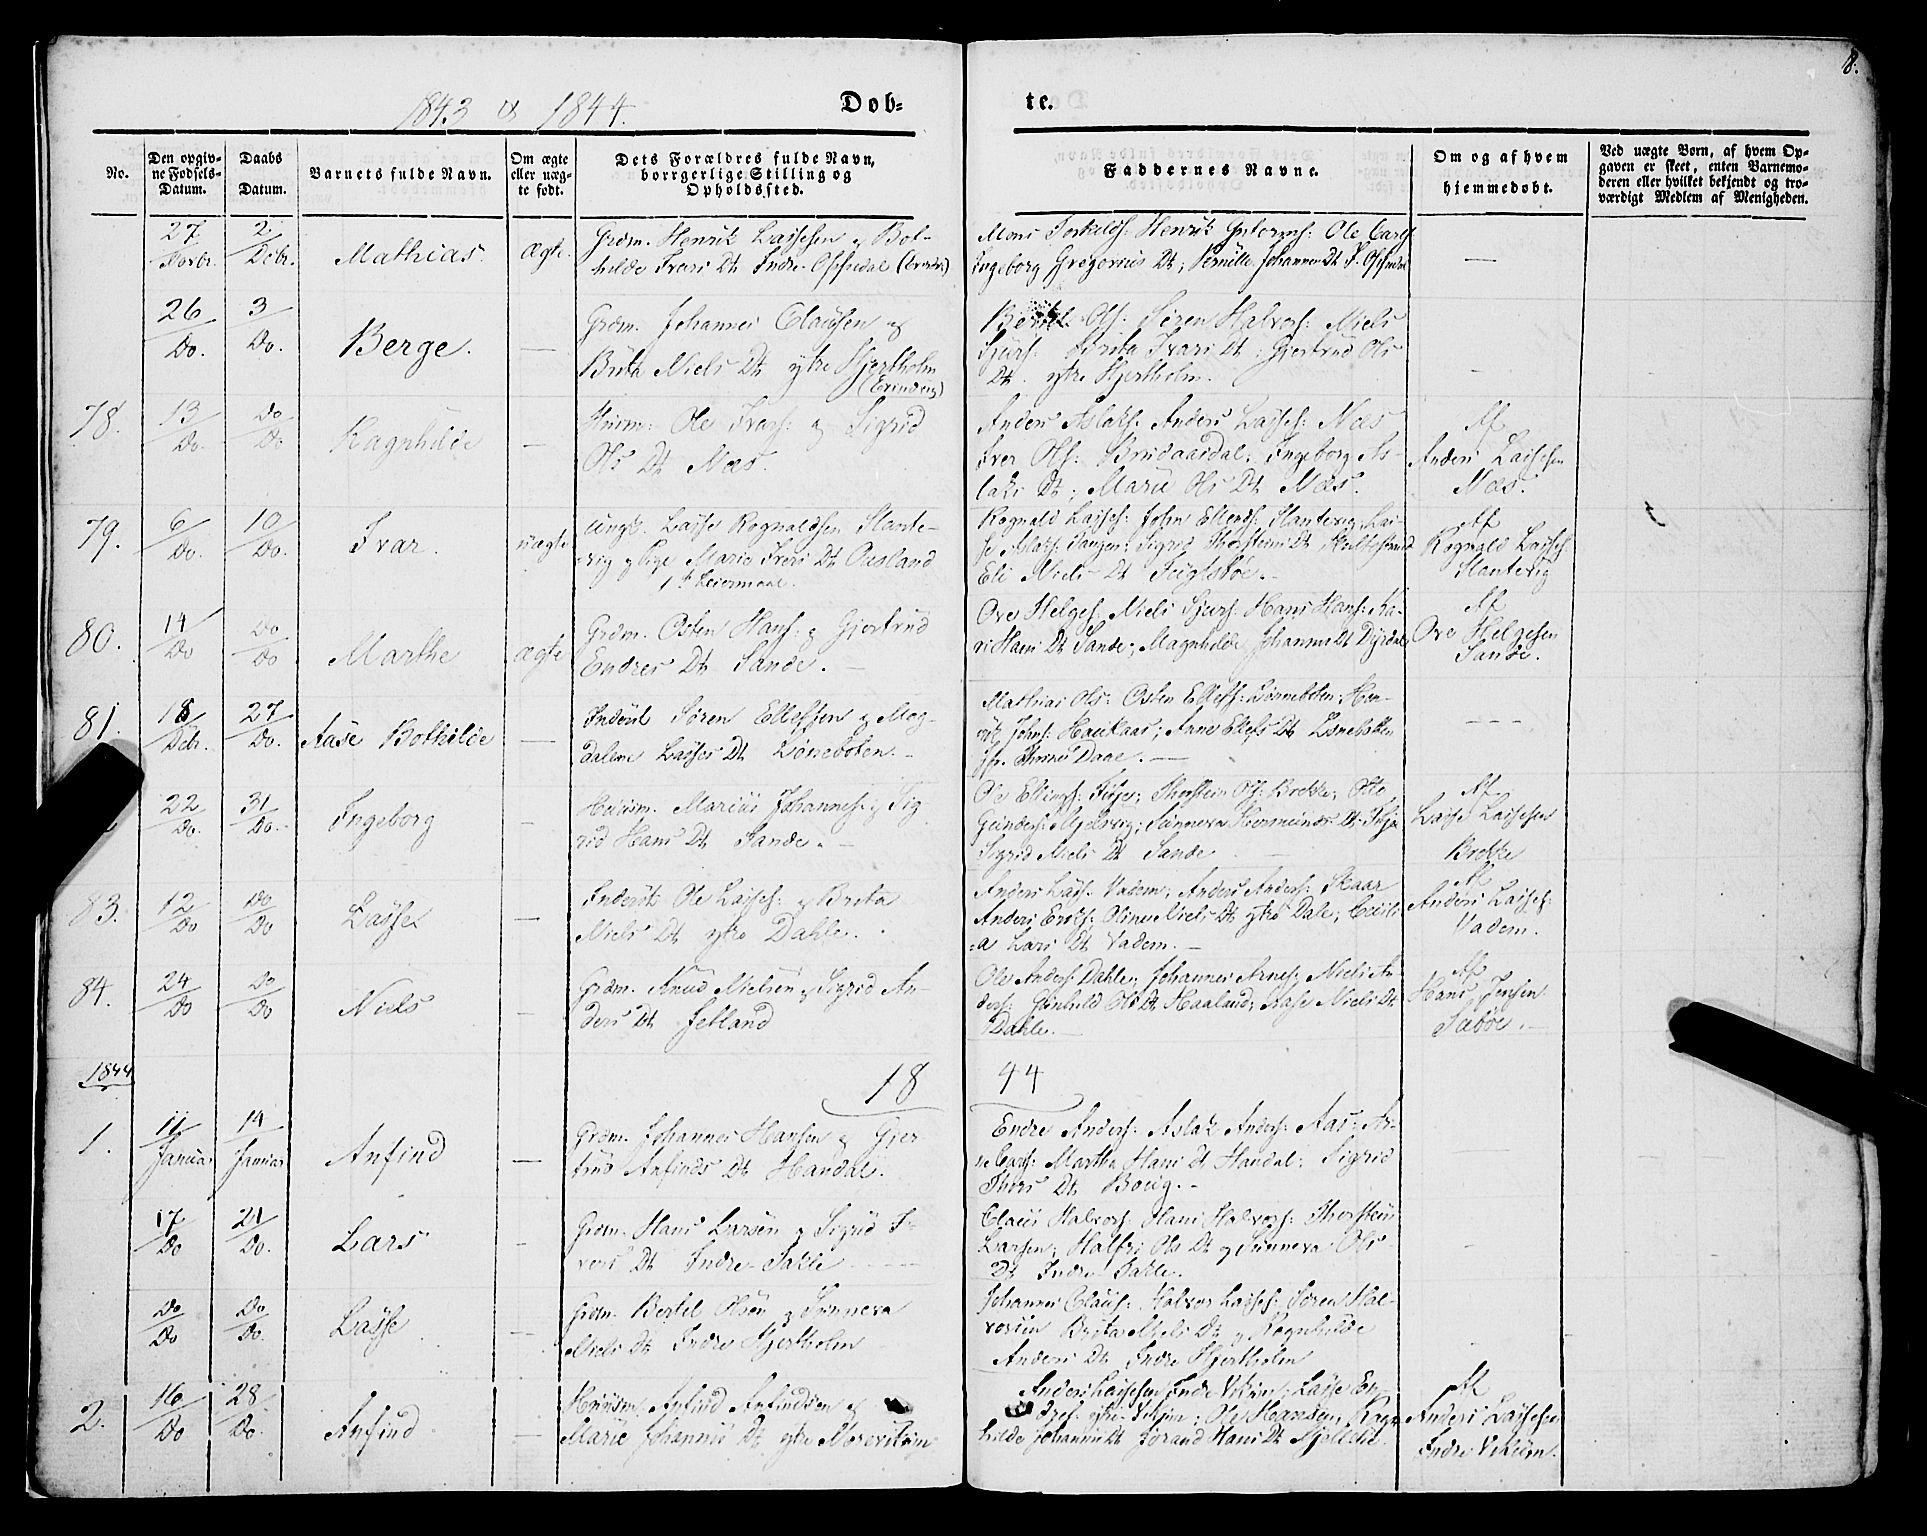 8.
1843 & 1844.
Dob=
te.
No.
Den opgiv-
ne Fødsels-
Datum.
Daabs
Datum.
Barnets fulde Navn.
Om ægte
eller uæg-
te født.
Dets Forældres fulde Navn,
borrgerlige Stilling og
Opholdssted.
Faddernes Navne.
Om og af hvem
hjemmedøbt.
Ved uægte Børn, af hvem Op-
gaven er skeet, enten Barnemo-
deren eller hvilket bekjendt og tro-
værdigt Medlem af Menigheden.
27 Novbr. 2 Dcbr. Mathias. ægte.
Grdm. Henrik Lassesen og Bot-
hilde Ivars Dt. Indre Oppedal
Ingeborg Gregorius Dt; Pernille Johannes Dt
26 Do. 3 Do. Berge.
Grdm. Johannes Claussen og
Brita Niels Dt. ytre Hjertholm
Ols: Søren Halvors: Niels
Sjurs: Brita Ivars Dt; Gjertrud Ols
Dt. ytre Hjertholm.
78. 13 Do. Do Do Ragnhilde
Huusm: Ole Ivers: og Sigrid
Ols Dt. Næs.
Anders Aslaks. Anders Lasses: Næs
Iver Ols: Ingeborg As-
laks Dt; Marie Ols Dt. Næs.
Af
Anders Lassesen
Næs.
79. 6 Do. 10 Do. Ivar. uægte
ungk. Lasse Rognaldsen Slante-
vig og Pige Marie Ivers Dt. Ousland
Rognald Lasses: John Ellends: Slantevig, Las-
se Aslaks: Sigrid Thorsteins Dt.
Eli Niels Dt.
Af
Rognald Lasses:
Slantevig
80. 14 Do Do Do Marthe ægte
Grdm. Osten Hans: og Gjertrud
Endres Dt. Sande.
Ove Helges. Niels Sjurs: Hans Hans: Ka-
ri Hans Dt. Sande; Magnhilde Johannes Dt. Dyrdal
Af
Ove Helgesen
Sande.
81. 18 Dcbr. 27 Do. Aase Bothilde
Inderst Søren Ellefsen og Mag-
dalene Lasses Dt. Lønebotten.
Mathias Ols: Osten Ellefs: Lønnebotten; Hen-
rik Johns: Haukaas; Anne Ellefs Dt. Lønebotten
Daae.
22 Do. 31 Do. Ingeborg
Huusm. Marius Johannes: og Sig-
rid Hans Dt. Sande.
Ole Ellings: Thorstein Ols: Brekke;
Sigrid Niels Dt. Sande
Af
Lasse Lassesen
Brekke
83. 12 Do Do Do Lasse
Inderst Ole Lasses: og Brita
Niels Dt. ytre Dahle.
Anders Lass: Vadem; Anders Anders: Skaar
Anders Ends: Oline Niels Dt ytre Dale; Cecili-
a Lars Dt Vadem.
Af
Anders Lasses:
Vadem.
84. 24 Do Do Do Niels
Grdm. Knud Nielsen og Sigrid An-
ders Dt. Jetland
Ole Anders: Dahle; Johannes Arnes; Niels An-
ders; Gunhild Ols Dt. Haaland; Aase Niels Dt
Dahle.
Af
Hans Jensen
Sæbøe.
1844
18 44
1. 11 Januar 14 Januar Anfind
Grdm. Johannes Hansen og Gjer-
trud Anfinds Dt Handal.
Endre Anders: Aslak Anders: Aas: Ar-
ne Martha Hans Dt Handal; Sigrid
Thors Dt.
17 Do 21 Do. Lars
Grdm. Hans Larsen og Sigrid I-
vers Dt. Indre Takle
Claus Halvors: Hans Halvors: Thorstein
Larsen; Ols Dt og Sunneva Ols
Dt. Indre Takle.
Do Do Do Do. Lasse
Grdm. Bertel Olsen og Sunneva
Niels Dt. Indre Hjertholm
Johannes Claus: Halvor Lasses: Søren Hal-
vorsen Brita Niels Dt. og Ragnhilde
Anders Dt. Indre Hjertholm
2. 16 Do 28 Do. Anfind
Huusm. Anfind Anfindsen og
Marie Johannis Dt. ytre
Anders Lassesen Indre Vikum; Lasse En-
ytre Ole Hansen; Ragn-
hilde Johannis Dt Jorand Hans Dt
Af
Anders Lassesen
Indre Vikum.